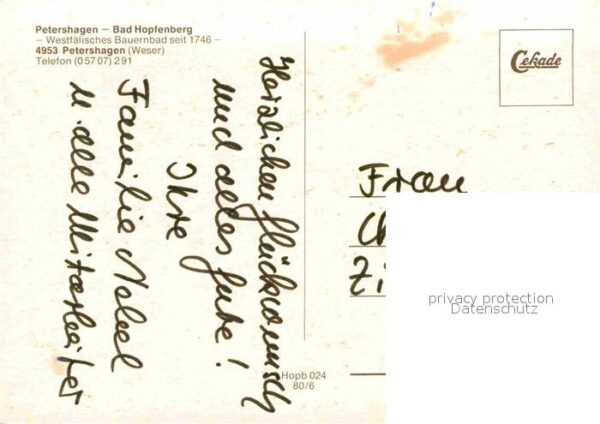 Petershagen — Bad Hopfenberg
— Westfälisches Bauernbad seit 1746 —
4953 Petershagen (Weser)
Telefon (05707) 291
Herzlichen Glückwunsch
und alles Gute!
Ihre
Familie
u. alle Mitarbeiter
Cekade
Frau
privacy protection
Datenschutz
Hopb 024
80/6